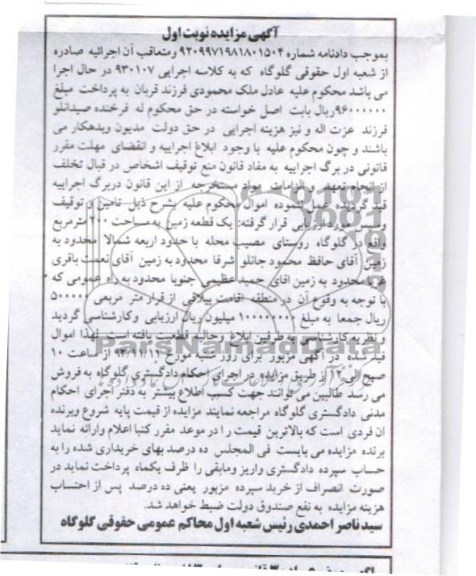 آگهی مزایده نوبت اول
بموجب دادنامه شماره ۹۲۰۹۹۷۱۹۸۱۸۰۱۵۰۴ ومتعاقب آن اجرائیه صادره
از شعبه اول حقوقی گلوگاه که به کلاسه اجرایی ۹۳۰۱۰۷ در حال اجرا
می باشد محکوم علیه عادل ملک محمودی فرزند قربان به پرداخت مبلغ
۹۶۰۰۰۰۰۰ریال بابت اصل خواسته در حق محکوم له فرخنده صیدانلو
فرزند عزت اله و نیز هزینه اجرایی در حق دولت مدیون وبدهکار می
باشند و چون محکوم علیه با وجود ابلاغ اجراییه و انقضای مهلت مقرر
قانونی در برگ اجراییه به مفاد قانون منع توقیف اشخاص در قبال تخلف
از انجام تعهد و الزامات مواد مستخرجه از این قانون دربرگ اجراییه
قید گردیده عمل ننموده اموال محکوم علیه بشرح ذیل تامین و توقیف
وسپس مورد ارزیابی قرار گرفته: یک قطعه زمین به مساحت ۲۰۰ مترمربع
واقع در گلوگاه روستای مصیب محله با حدود اربعه شمالا محدود به
زمین آقای حافظ محمود جانلو شرقا محدود به زمین آقای نعمت باقری
غربا محدود به زمین اقای حمید عظیمی جنوبا محدود به راه عمومی که
با توجه به وقوع آن در منطقه اقامت ییلاقی از قرار متر مربعی ۵۰۰۰۰۰
ریال جمعا به مبلغ ۱۰۰۰۰۰۰۰۰ میلیون ریال ارزیابی وکارشناسی گردید
و نظریه کارشناسی به طرفین ابلاغ وحالت قطعیت یافته است لهذا اموال
قید شده در آگهی مزبور برای روز سه شنبه مورخ ۹۳/۱۱/۱۴ از ساعت ۱۰
صبح الی ۱۲ از طریق مزایده در اجرای احکام دادگستری گلوگاه به فروش
می رسد طالبین می توانند جهت کسب اطلاع بیشتر به دفتر اجرای احکام
مدنی دادگستری گلوگاه مراجعه نمایند مزایده از قیمت پایه شروع وبرنده
آن فردی است که بالاترین قیمت را در موعد مقرر کتبا اعلام وارائه نماید
برنده مزایده می بایست فی المجلس ده درصد بهای خریداری شده را به
حساب سپرده دادگستری واریز ومابقی را ظرف یکماه پرداخت نماید در
صورت انصراف از خرید سپرده مزبور یعنی ده درصد پس از احتساب
هزینه مزایده به نفع صندوق دولت ضبط خواهد شد.
سید ناصر احمدی رئیس شعبه اول محاکم عمومی حقوقی گلوگاه
ParsNamadData